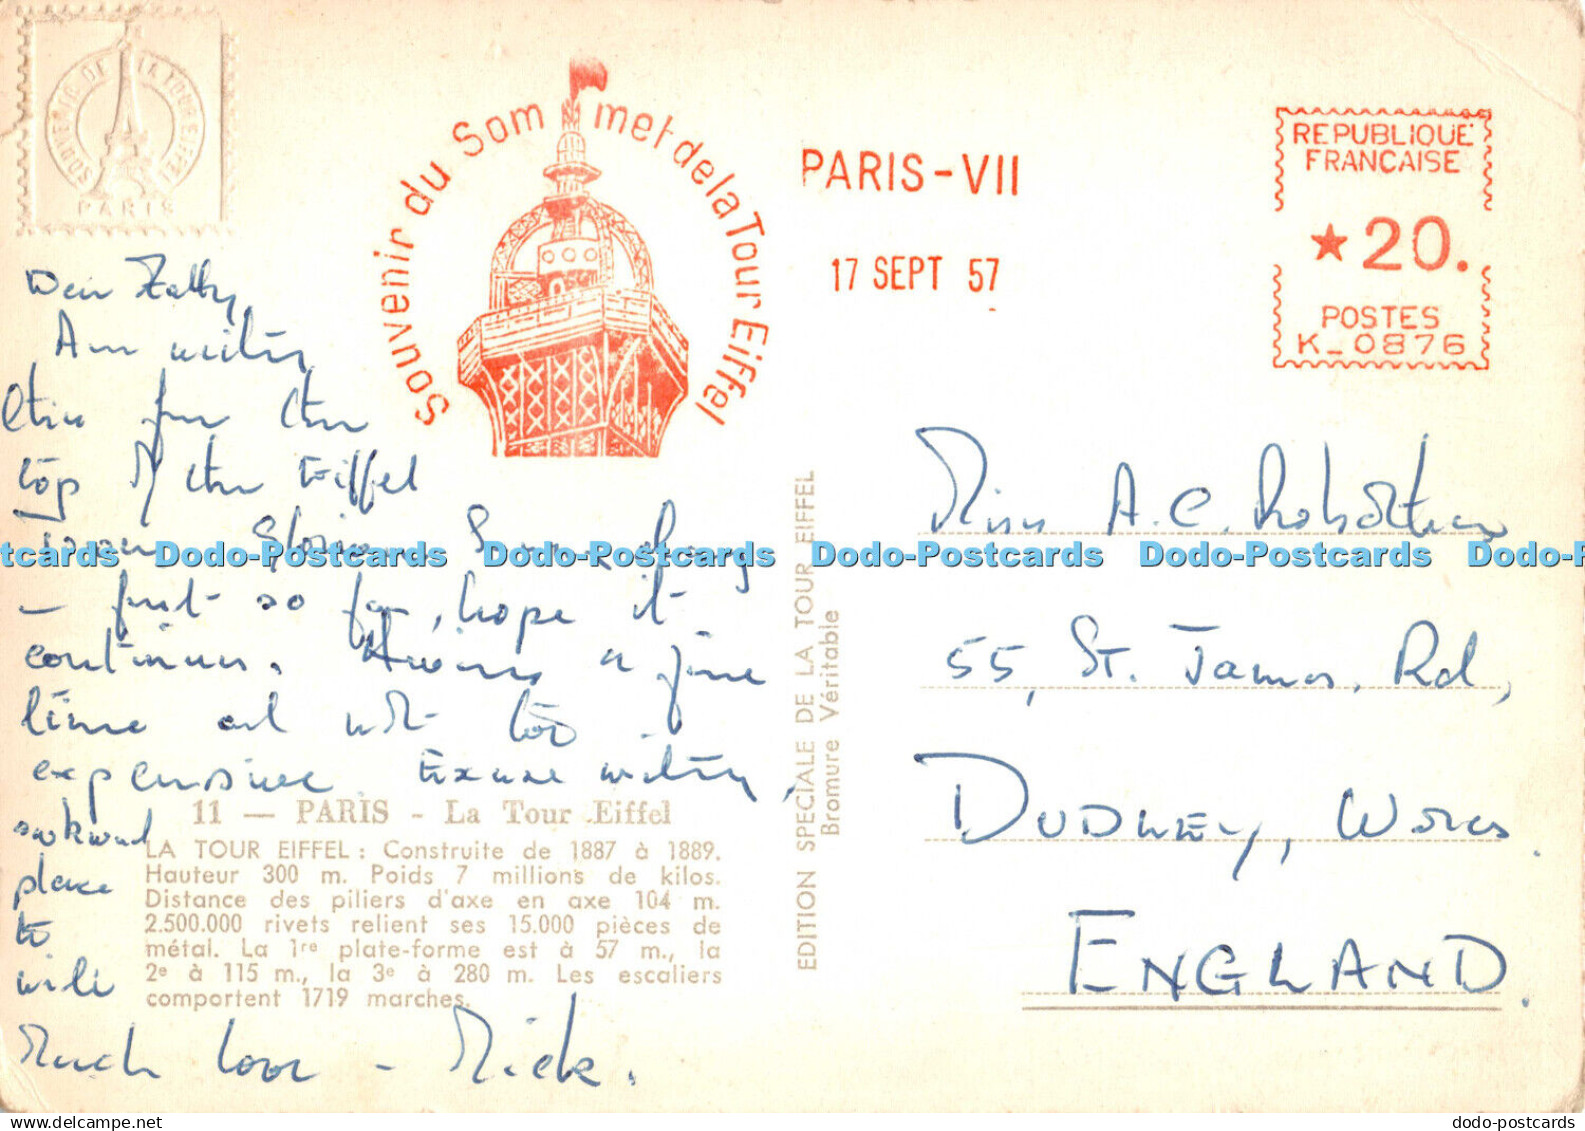 SOUVENIR DE LA TOUR EIFFEL
PARIS
Souvenir du Sommet de la Tour Eiffel
PARIS-VII
17 SEPT 57
REPUBLIQUE
FRANCAISE
★20.
POSTES
K_0876
Dear
Am writing
this from the
top of the Eiffel
Tower. Glorious
– just so far, hope it
continues. Having a fine
time and not too
expensive. Excuse writing,
awkward
place
to
write
Much love – Nick.
11 — PARIS - La Tour Eiffel
LA TOUR EIFFEL : Construite de 1887 à 1889.
Hauteur 300 m. Poids 7 millions de kilos.
Distance des piliers d'axe en axe 104 m.
2.500.000 rivets relient ses 15.000 pièces de
métal. La 1re plate-forme est à 57 m., la
2e à 115 m., la 3e à 280 m. Les escaliers
comportent 1719 marches.
EDITION SPECIALE DE LA TOUR EIFFEL
Bromure Véritable
Miss A.C. Robertson
55, St. James Rd,
DUDLEY, Worcs
ENGLAND.
tcards Dodo-Postcards Dodo-Postcards Dodo-Postcards Dodo-Postcards Dodo-P
dodo-postcards.com